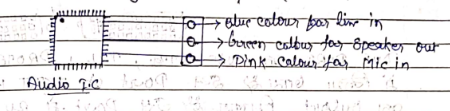 Blue colour for line in
Green colour for speaker out
Pink colour for Mic in
Audio I.C